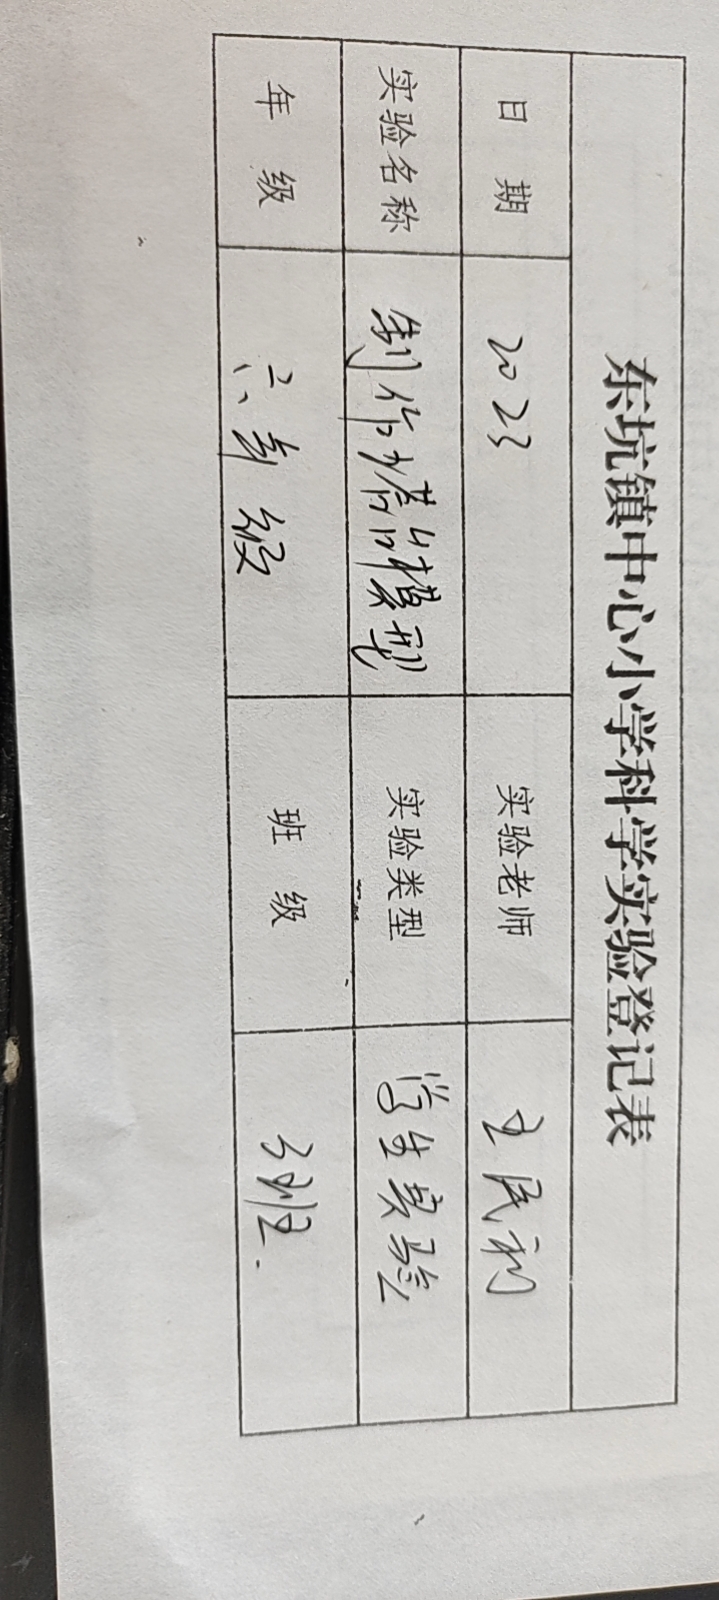 东坑镇中心小学科学实验登记表
日 期 2023 实验老师 王民利
实验名称 制作塔的模型 实验类型 学生实验
年 级 六年级 班 级 3班.